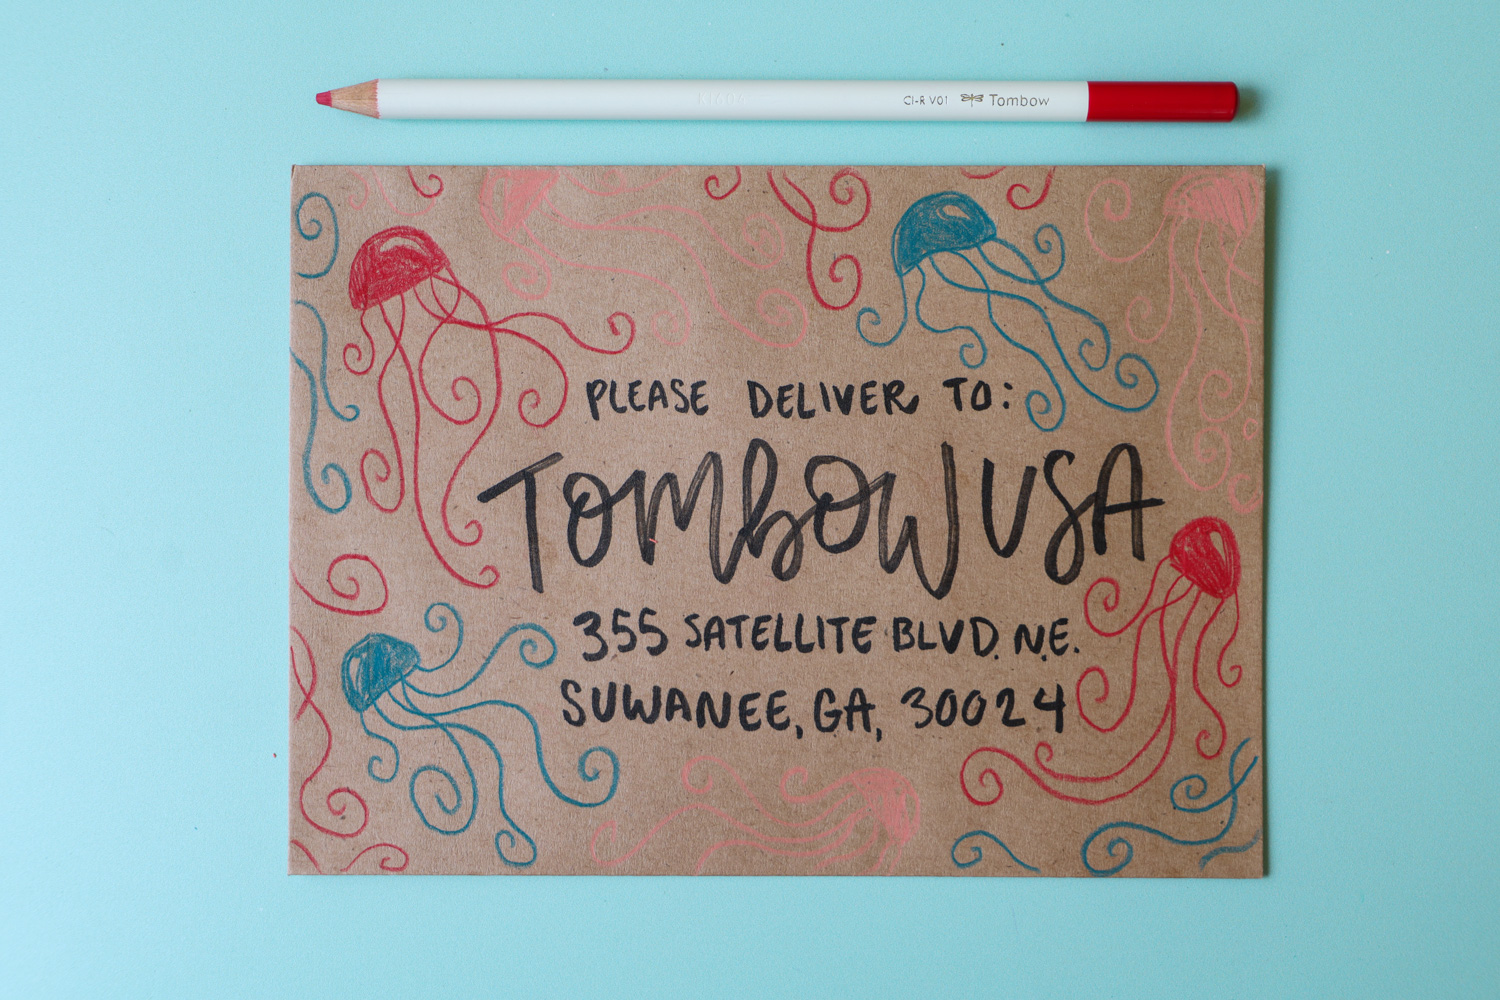 CI-R V01 Tombow
PLEASE DELIVER TO:
TOMBOW USA
355 SATELLITE BLVD. N.E.
SUWANEE, GA, 30024